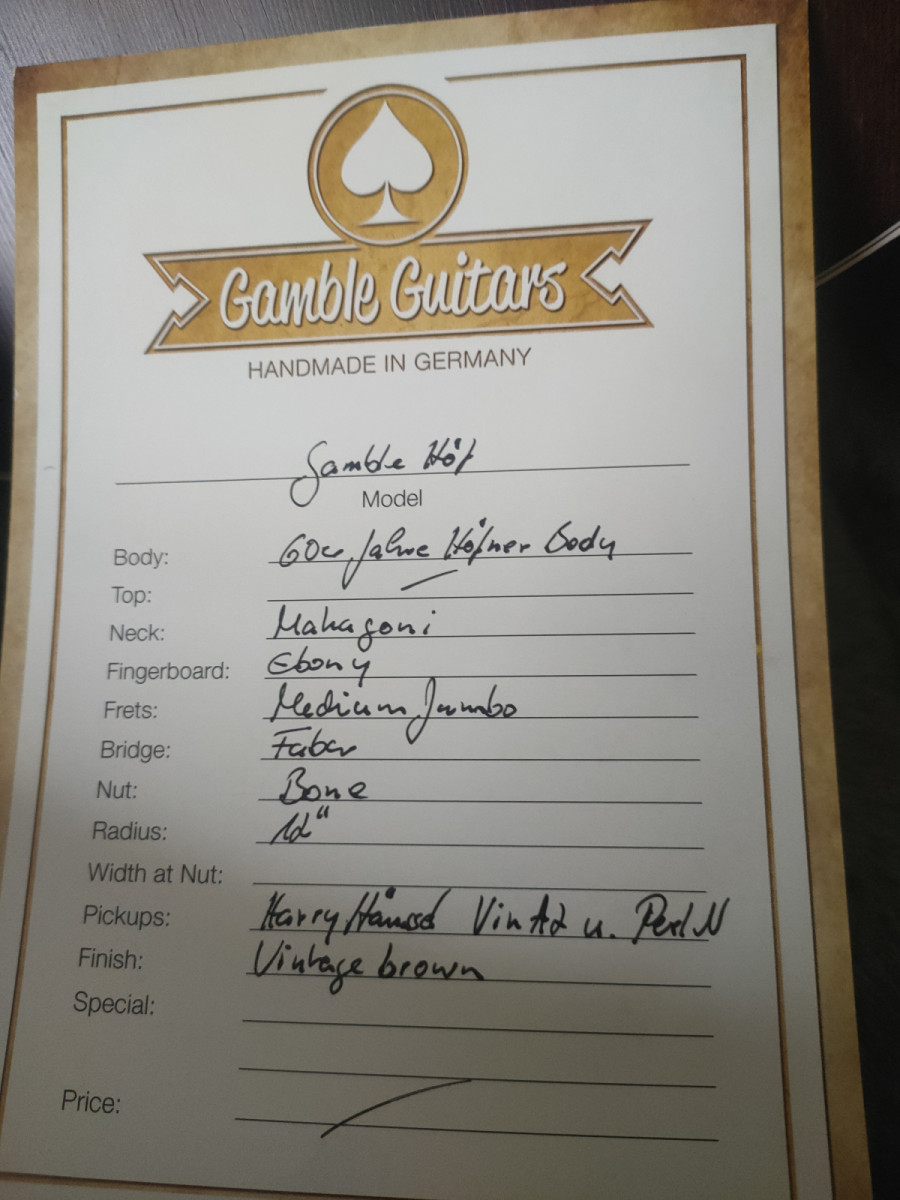 Gamble Guitars
HANDMADE IN GERMANY
Gamble Höf
Model
Body: 60er Jahre Höfner Body
Top:
Neck: Mahagoni
Fingerboard: Ebony
Frets: Medium Jumbo
Bridge: Faber
Nut: Bone
Radius: 12"
Width at Nut:
Pickups: Harry Häussel Vin u.
Finish: Vintage brown
Special:
Price: